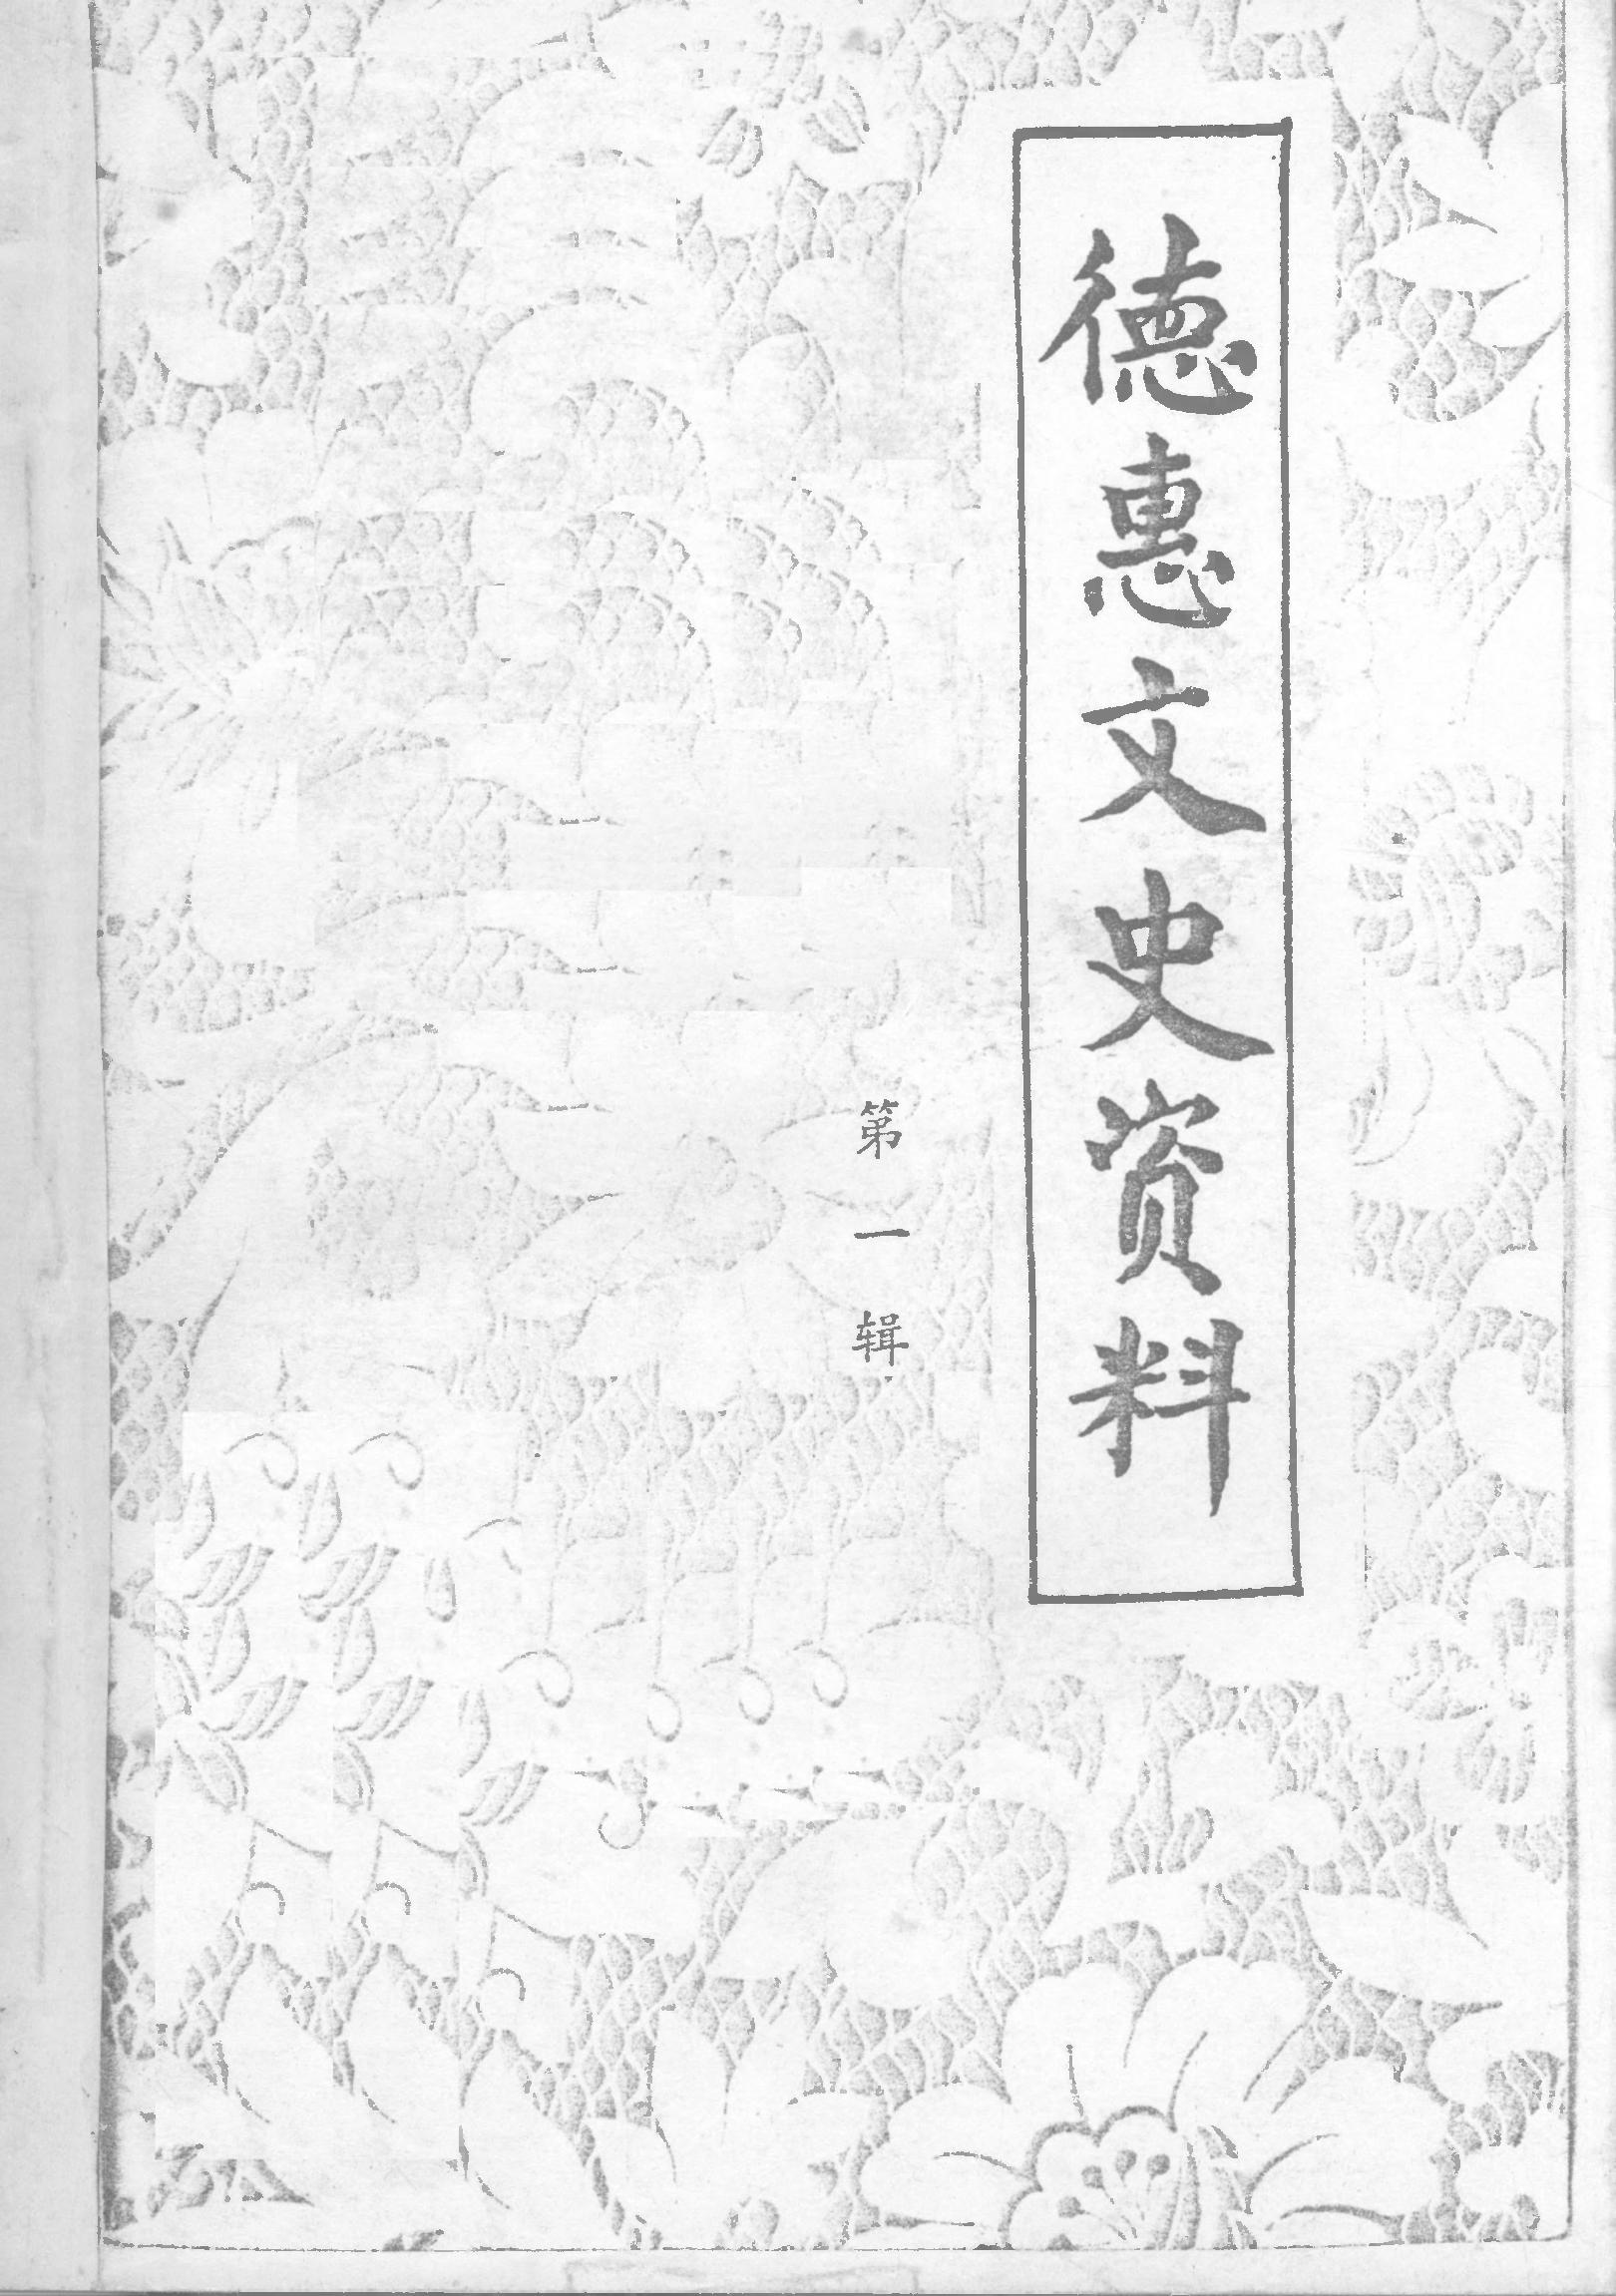 德惠文史资料
第一辑